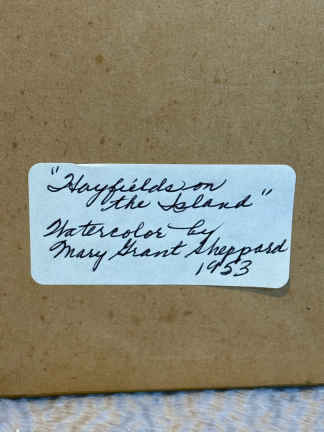 "Hayfields on
the Island"
Watercolor by
Mary Grant Sheppard
1953